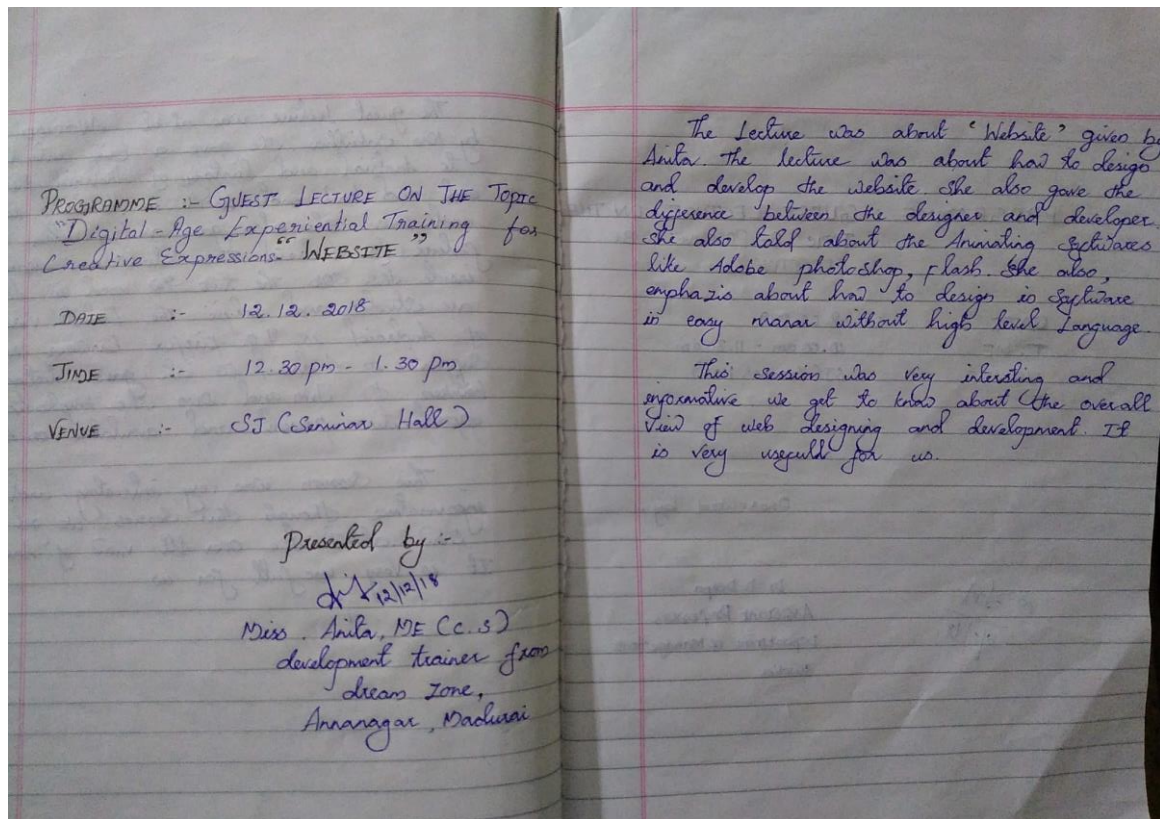 PROGRAMME :- GUEST LECTURE ON THE TOPIC
"Digital-Age Experiential Training for
Creative Expressions" "WEBSITE"
DATE :- 12.12.2018
TIME :- 12.30 pm - 1.30 pm
VENUE :- SJ (Seminar Hall)
Presented by :-
12/12/18
Miss. Anita, ME (C.S)
development trainer from
dream zone,
Annanagar, Madurai
The Lecture was about "Website" given by
Anita. The lecture was about how to design
and develop the website she also gave the
difference between the designer and developer.
She also told about the Animating Softwares
like Adobe photoshop, flash. She also,
emphazis about how to design is Software
in easy manar without high level Language.
This session was very intersting and
informative we get to know about (the overall
view of web designing and development. It
is very usefull for us.